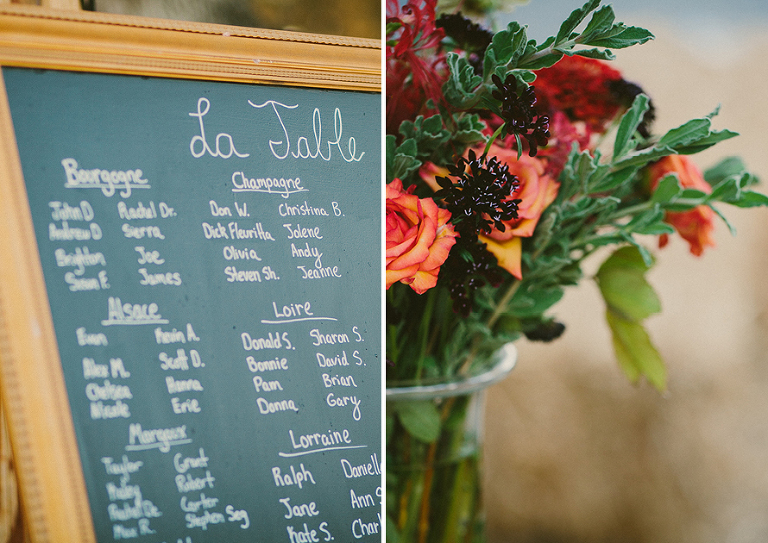 La Table
Bourgogne
John D Rachel Dr.
Andrew D Sierra
Brighton Joe
Sean F. James
Champagne
Don W. Christina B.
Dick Fleuritta Jolene
Olivia Andy
Steven Sh. Jeanne
Alsace
Evan Kevin A.
Alex M. Scott D.
Chelsea Henna
Nicole Erie
Loire
Donald S. Sharon S.
Bonnie David S.
Pam Brian
Donna Gary
Margaux
Taylor Grant
Robert
Rachel De. Carter
Max R. Stephen Seg
Lorraine
Ralph Daniell
Jane Ann S
Kate S. Charl